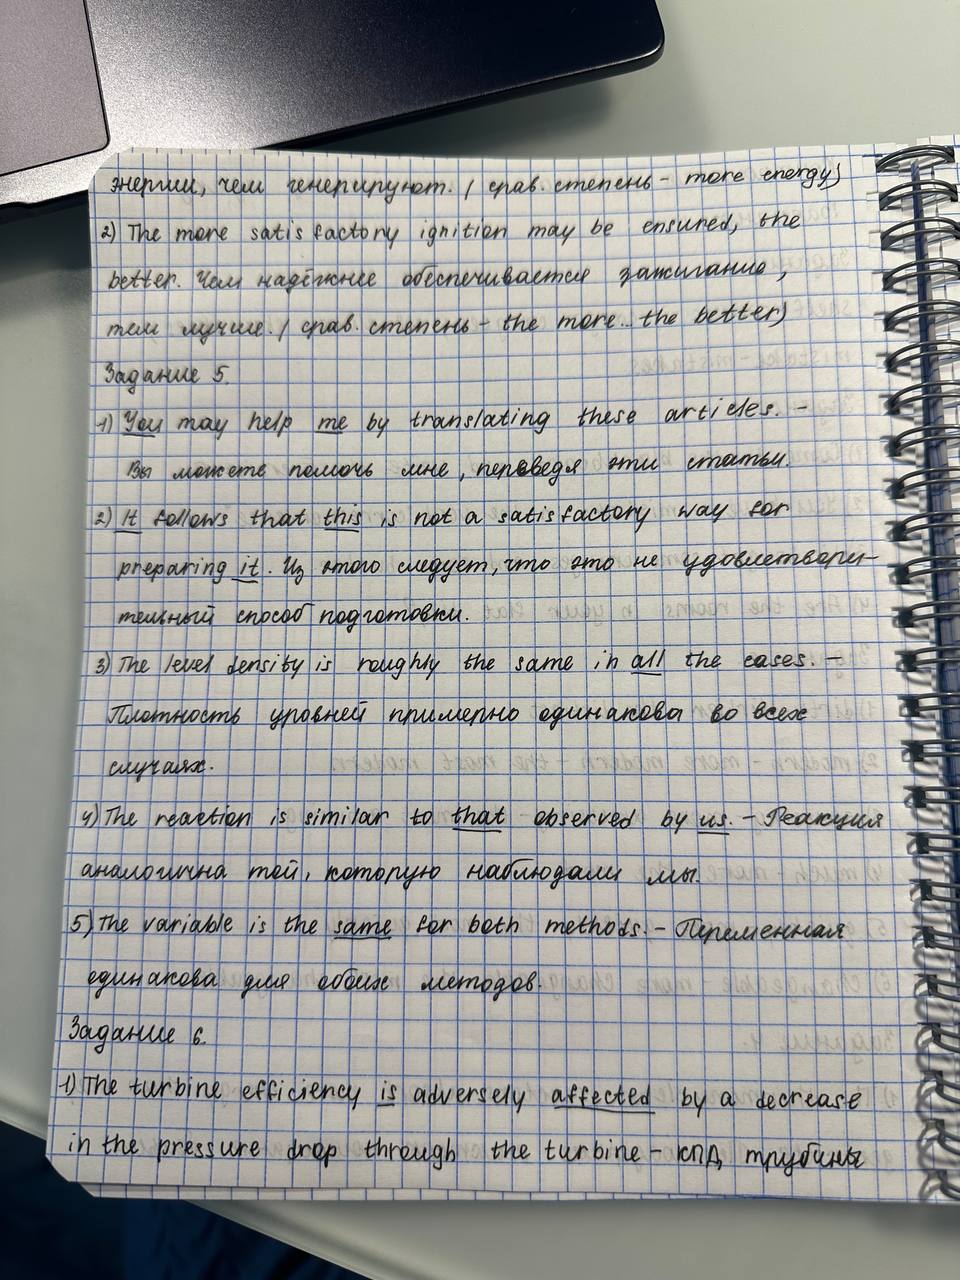 энергии, чем генерируют. / срав. степень - more energy)
2) The more satisfactory ignition may be ensured, the
better. Чем надёжнее обеспечивается зажигание,
тем лучше. / срав. степень - the more... the better)
Задание 5.
1) You may help me by translating these articles. -
Вы можете помочь мне, переведя эти статьи.
2) It follows that this is not a satisfactory way for
preparing it. Из этого следует, что это не удовлетвори-
тельный способ подготовки.
3) The level density is roughly the same in all the cases. -
Плотность уровней примерно одинакова во всех
случаях.
4) The reaction is similar to that observed by us. - Реакция
аналогична той, которую наблюдали мы.
5) The variable is the same for both methods. - Переменная
одинакова для обоих методов.
Задание 6.
1) The turbine efficiency is adversely affected by a decrease
in the pressure drop through the turbine - КПД трубины